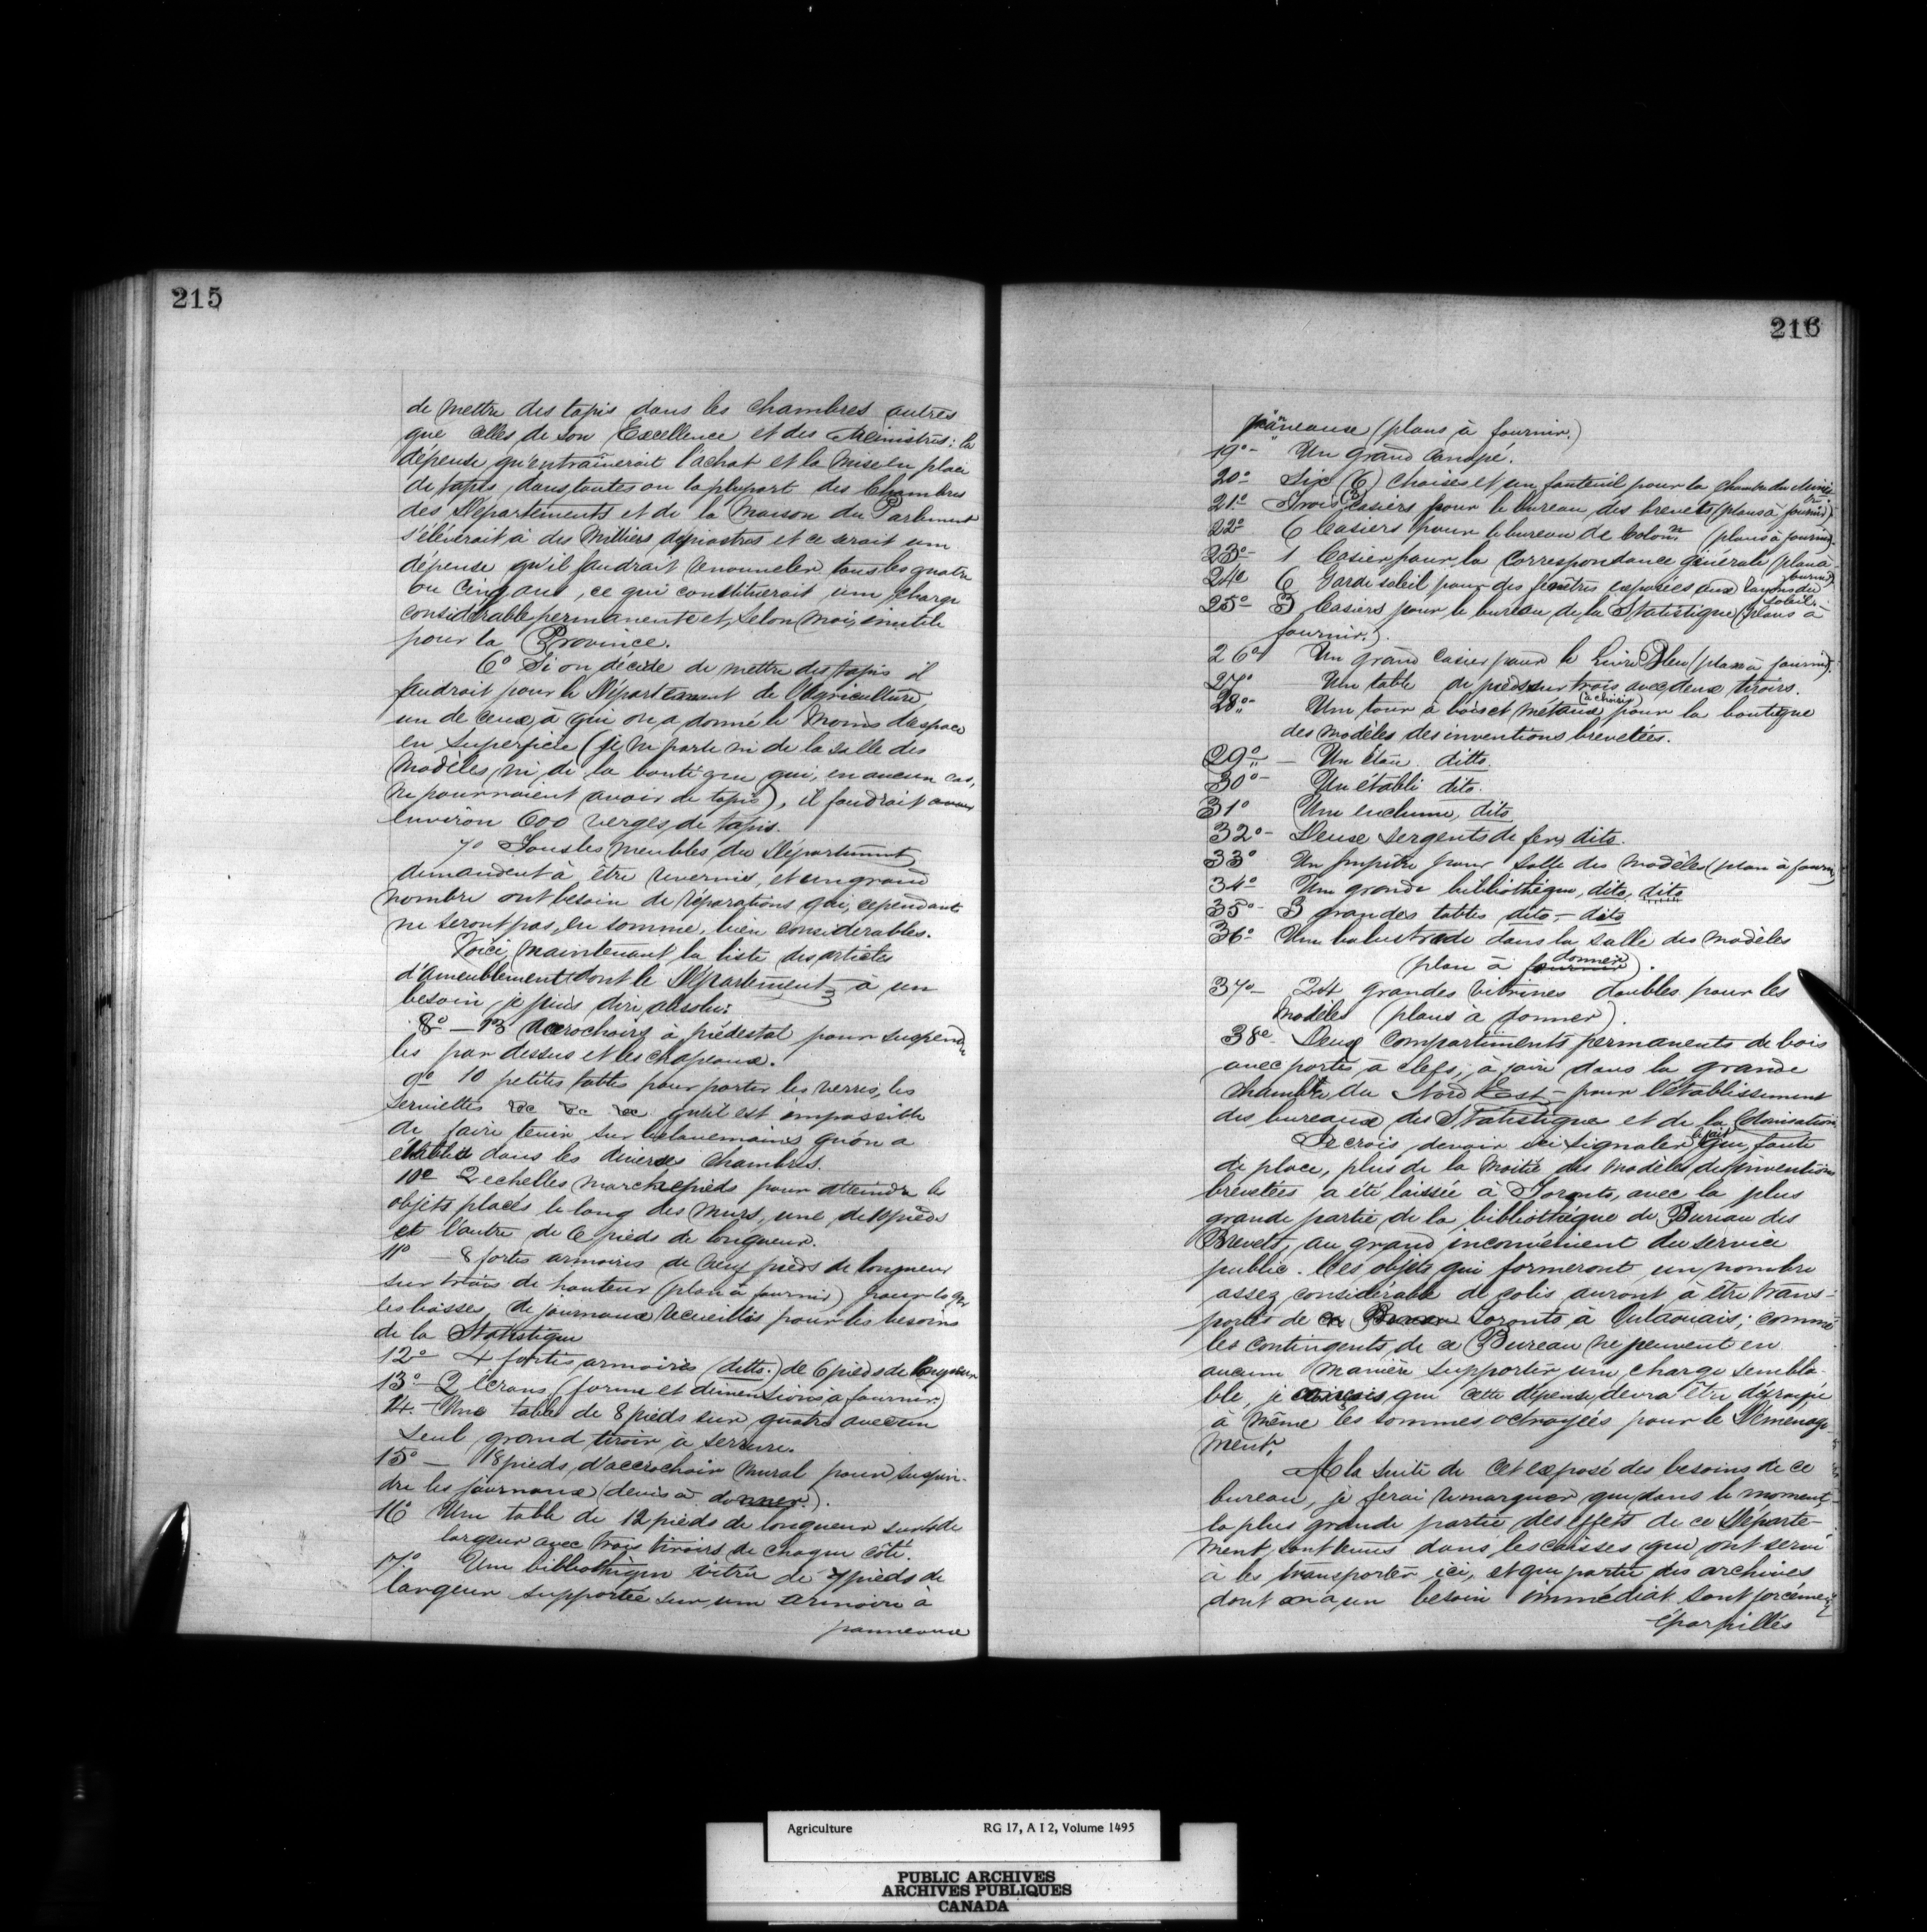 215
de mettre des tapis dans les chambres autres
que celles de son Excellence et des Ministres: la
dépense qu'entraînerait l'achat et la mise en place
de tapis dans toutes ou la plupart des Chambres
des Départements et de la Maison du Parlement
s'élèverait à des milliers de piastres et ce serait une
dépense qu'il faudrait renouveler tous les quatre
ou cinq ans, ce qui constituerait une charge
considérable permanente et, selon moi, inutile
pour la Province.
6° Si on décide de mettre des tapis il
faudrait pour le Département de l'Agriculture,
un de ceux à qui on a donné le moins d'espace
en superficie (je ne parle ni de la salle des
modèles, ni de la boutique qui, en aucun cas,
ne pourraient avoir de tapis), il faudrait avoir
environ 600 verges de tapis.
7° Tous les meubles du Département
demandent à être revernis, et un grand
nombre ont besoin de réparations qui, cependant
ne seront pas, en somme, bien considérables.
Voici, maintenant, la liste des articles
d'ameublement dont le Département à un
besoin, je puis dire absolu:
8° — 13 Accrochoirs à piédestal pour suspendre
les par dessus et les chapeaux.
9° 10 petites tables pour porter les verres, les
serviettes &c &c &c qu'il est impossible
de faire tenir sur les lavemains qu'on a
établis dans les diverses chambres.
10° 2 echelles marchepieds pour atteindre les
objets placés le long des murs, une de 10 pieds
et l'autre de 6 pieds de longueur.
11° — 8 fortes armoires de neuf pieds de longueur
sur trois de hauteur (plan à fournir) pour loger
les liasses de journaux recueillis pour les besoins
de la Statistique
12° 4 fortes armoires (ditto.) de 6 pieds de longueur
13° — 2 écrans (forme et dimensions à fournir.)
14. — Une table de 8 pieds sur quatre avec un
seul grand tiroir à serrure.
15° — 18 pieds d'accrochoir mural pour suspen-
dre les journaux (devis à donner.).
16° Une table de 12 pieds de longueur sur 4 de
largeur avec trois tiroirs de chaque côté.
17.° Une bibliothèque vitrée de 7 pieds de
largeur supportée sur une armoire à
panneaux
216
panneaux (plans à fournir.)
19° — Un grand canapé.
20° Six (6) chaises et un fauteuil pour la chambre du Minis-
tre
21° Trois (3) casiers pour le bureau des brevets (plans à fournir)
22° 6 Casiers pour le bureau de Colon.n (plans à fournir).
23° — 1 Casier pour la correspondance générale (plan à
fournir)
24° 6 Garde soleil pour des fenêtres exposées aux rayons du
soleil.
25° 3 Casiers pour le bureau de la Statistique (plans à
fournir.).
26° Un grand casier pour le Livre Bleu (plan à fournir).
27° Une table de pieds sur trois avec deux tiroirs.
28° — Un tour à bois et métaux (à choisir) pour la boutique
des modèles des inventions brevetées.
29° — Un Étau ditto.
30° — Un établi dito.
31° Une enclume, dito
32° — Deux sergents de fer, dito.
33° Un pupitre pour salle des modèles (plan à fournir)
34° Une grande bibliothèque, dito, dito
35° — 3 grandes tables dito — dito
36° — Une balustrade dans la salle des modèles
(plan à fournir donner).
37° — 24 grandes vitrines doubles pour les
modèles (plans à donner).
38° — Deux compartiments permanents de bois
avec portes à clefs, à faire dans la grande
chambre du Nord Est — pour l'établissement
des bureaux des Statistique et de la Colonisation
Je crois devoir ici signaler le fait que, faute
de place, plus de la moitié des modèles des inventions
brevetées a été laissée à Toronto, avec la plus
grande partie de la bibliothèque de Bureau des
Brevets, au grand inconvénient du service
public. Ces objets qui formeront un nombre
assez considérable de colis auront à être trans-
portés de ce Bureau Toronto à Outaouais; comme
les contingents de ce Bureau ne peuvent en
aucune manière supporter une charge sembla-
ble, je conçois que cette dépense devra être défrayée
à même les sommes octroyées pour le Déménage-
ment.
A la suite de cet exposé des besoins de ce
bureau, je ferai remarquer que dans le moment
la plus grande partie des effets de ce Départe-
ment sont tenus dans les caisses qui ont servi
à les transporter ici, et que partie des archives
dont on a un besoin immédiat sont forcément
éparpillés
Agriculture RG 17, A I 2, Volume 1495
PUBLIC ARCHIVES
ARCHIVES PUBLIQUES
CANADA